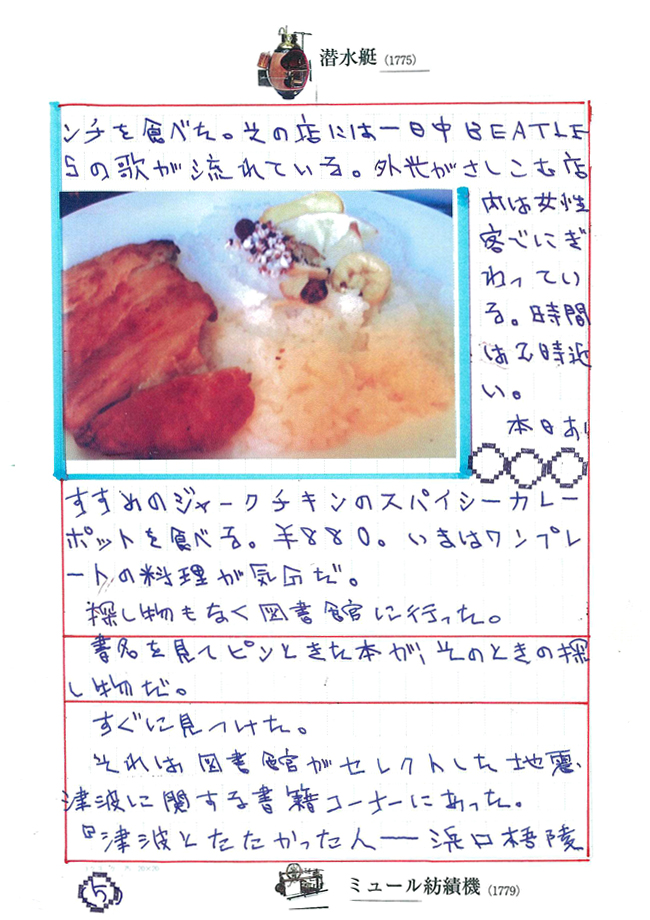 潜水艇 (1775)
ンチを食べた。その店には一日中BEATLE
Sの歌が流れている。外光がさしこむ店
内は女性
客でにぎ
わってい
る。時間
は2時近
い。
本日お
すすめのジャークチキンのスパイシーカレー
ポットを食べる。¥880。いまはワンプレ
ートの料理が気分だ。
探し物もなく図書館に行った。
書名を見てピンときた本が、そのときの探
し物だ。
すぐに見つけた。
それは図書館がセレクトした地震、
津波に関する書籍コーナーにあった。
『津波とたたかった人──浜口梧陵
5
ミュール紡績機 (1779)